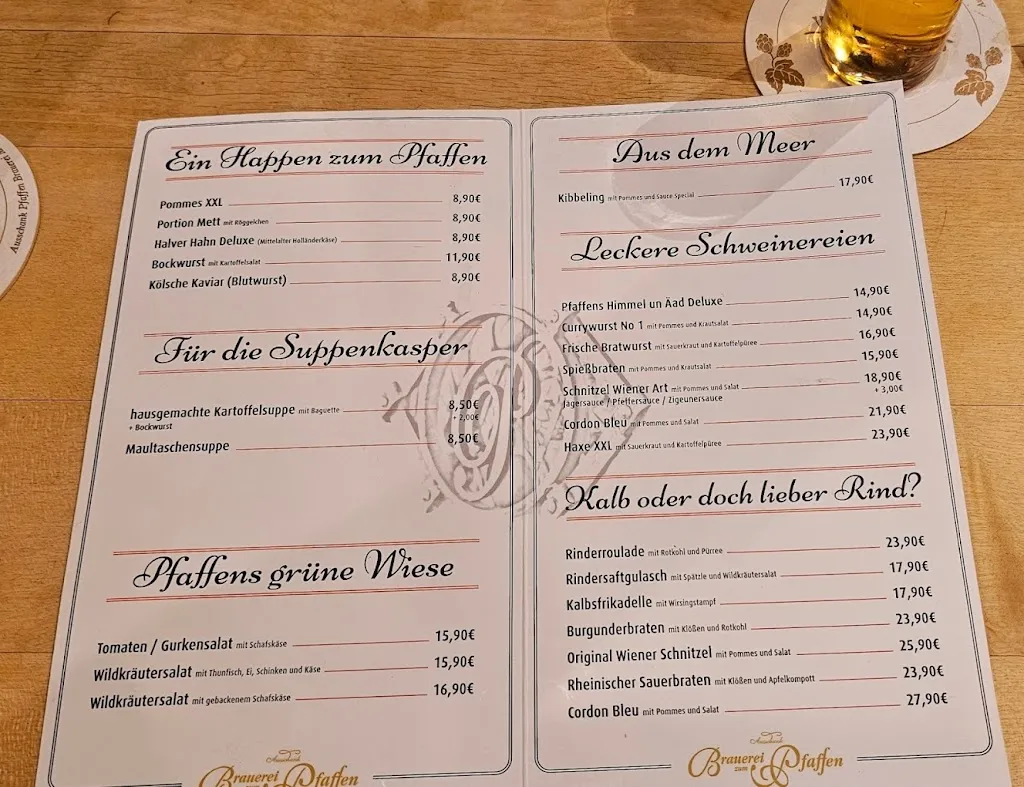 Ein Happen zum Pfaffen
Pommes XXL 8,90€
Portion Mett mit Röggelchen 8,90€
Halver Hahn Deluxe (Mittelalter Holländerkäse) 8,90€
Bockwurst mit Kartoffelsalat 11,90€
Kölsche Kaviar (Blutwurst) 8,90€
Für die Suppenkasper
hausgemachte Kartoffelsuppe mit Baguette 8,50€
+ Bockwurst + 2,00€
Maultaschensuppe 8,50€
Pfaffens grüne Wiese
Tomaten / Gurkensalat mit Schafskäse 15,90€
Wildkräutersalat mit Thunfisch, Ei, Schinken und Käse 15,90€
Wildkräutersalat mit gebackenem Schafskäse 16,90€
Ausschank
Brauerei zum Pfaffen
Aus dem Meer
Kibbeling mit Pommes und Sauce Special 17,90€
Leckere Schweinereien
Pfaffens Himmel un Äad Deluxe 14,90€
Currywurst No 1 mit Pommes und Krautsalat 14,90€
Frische Bratwurst mit Sauerkraut und Kartoffelpüree 16,90€
Spießbraten mit Pommes und Krautsalat 15,90€
Schnitzel Wiener Art mit Pommes und Salat 18,90€
Jägersauce / Pfeffersauce / Zigeunersauce + 3,00€
Cordon Bleu mit Pommes und Salat 21,90€
Haxe XXL mit Sauerkraut und Kartoffelpüree 23,90€
Kalb oder doch lieber Rind?
Rinderroulade mit Rotkohl und Pürree 23,90€
Rindersaftgulasch mit Spätzle und Wildkräutersalat 17,90€
Kalbsfrikadelle mit Wirsingstampf 17,90€
Burgunderbraten mit Klößen und Rotkohl 23,90€
Original Wiener Schnitzel mit Pommes und Salat 25,90€
Rheinischer Sauerbraten mit Klößen und Apfelkompott 23,90€
Cordon Bleu mit Pommes und Salat 27,90€
Ausschank
Brauerei zum Pfaffen
Ausschank Pfaffen Brauerei